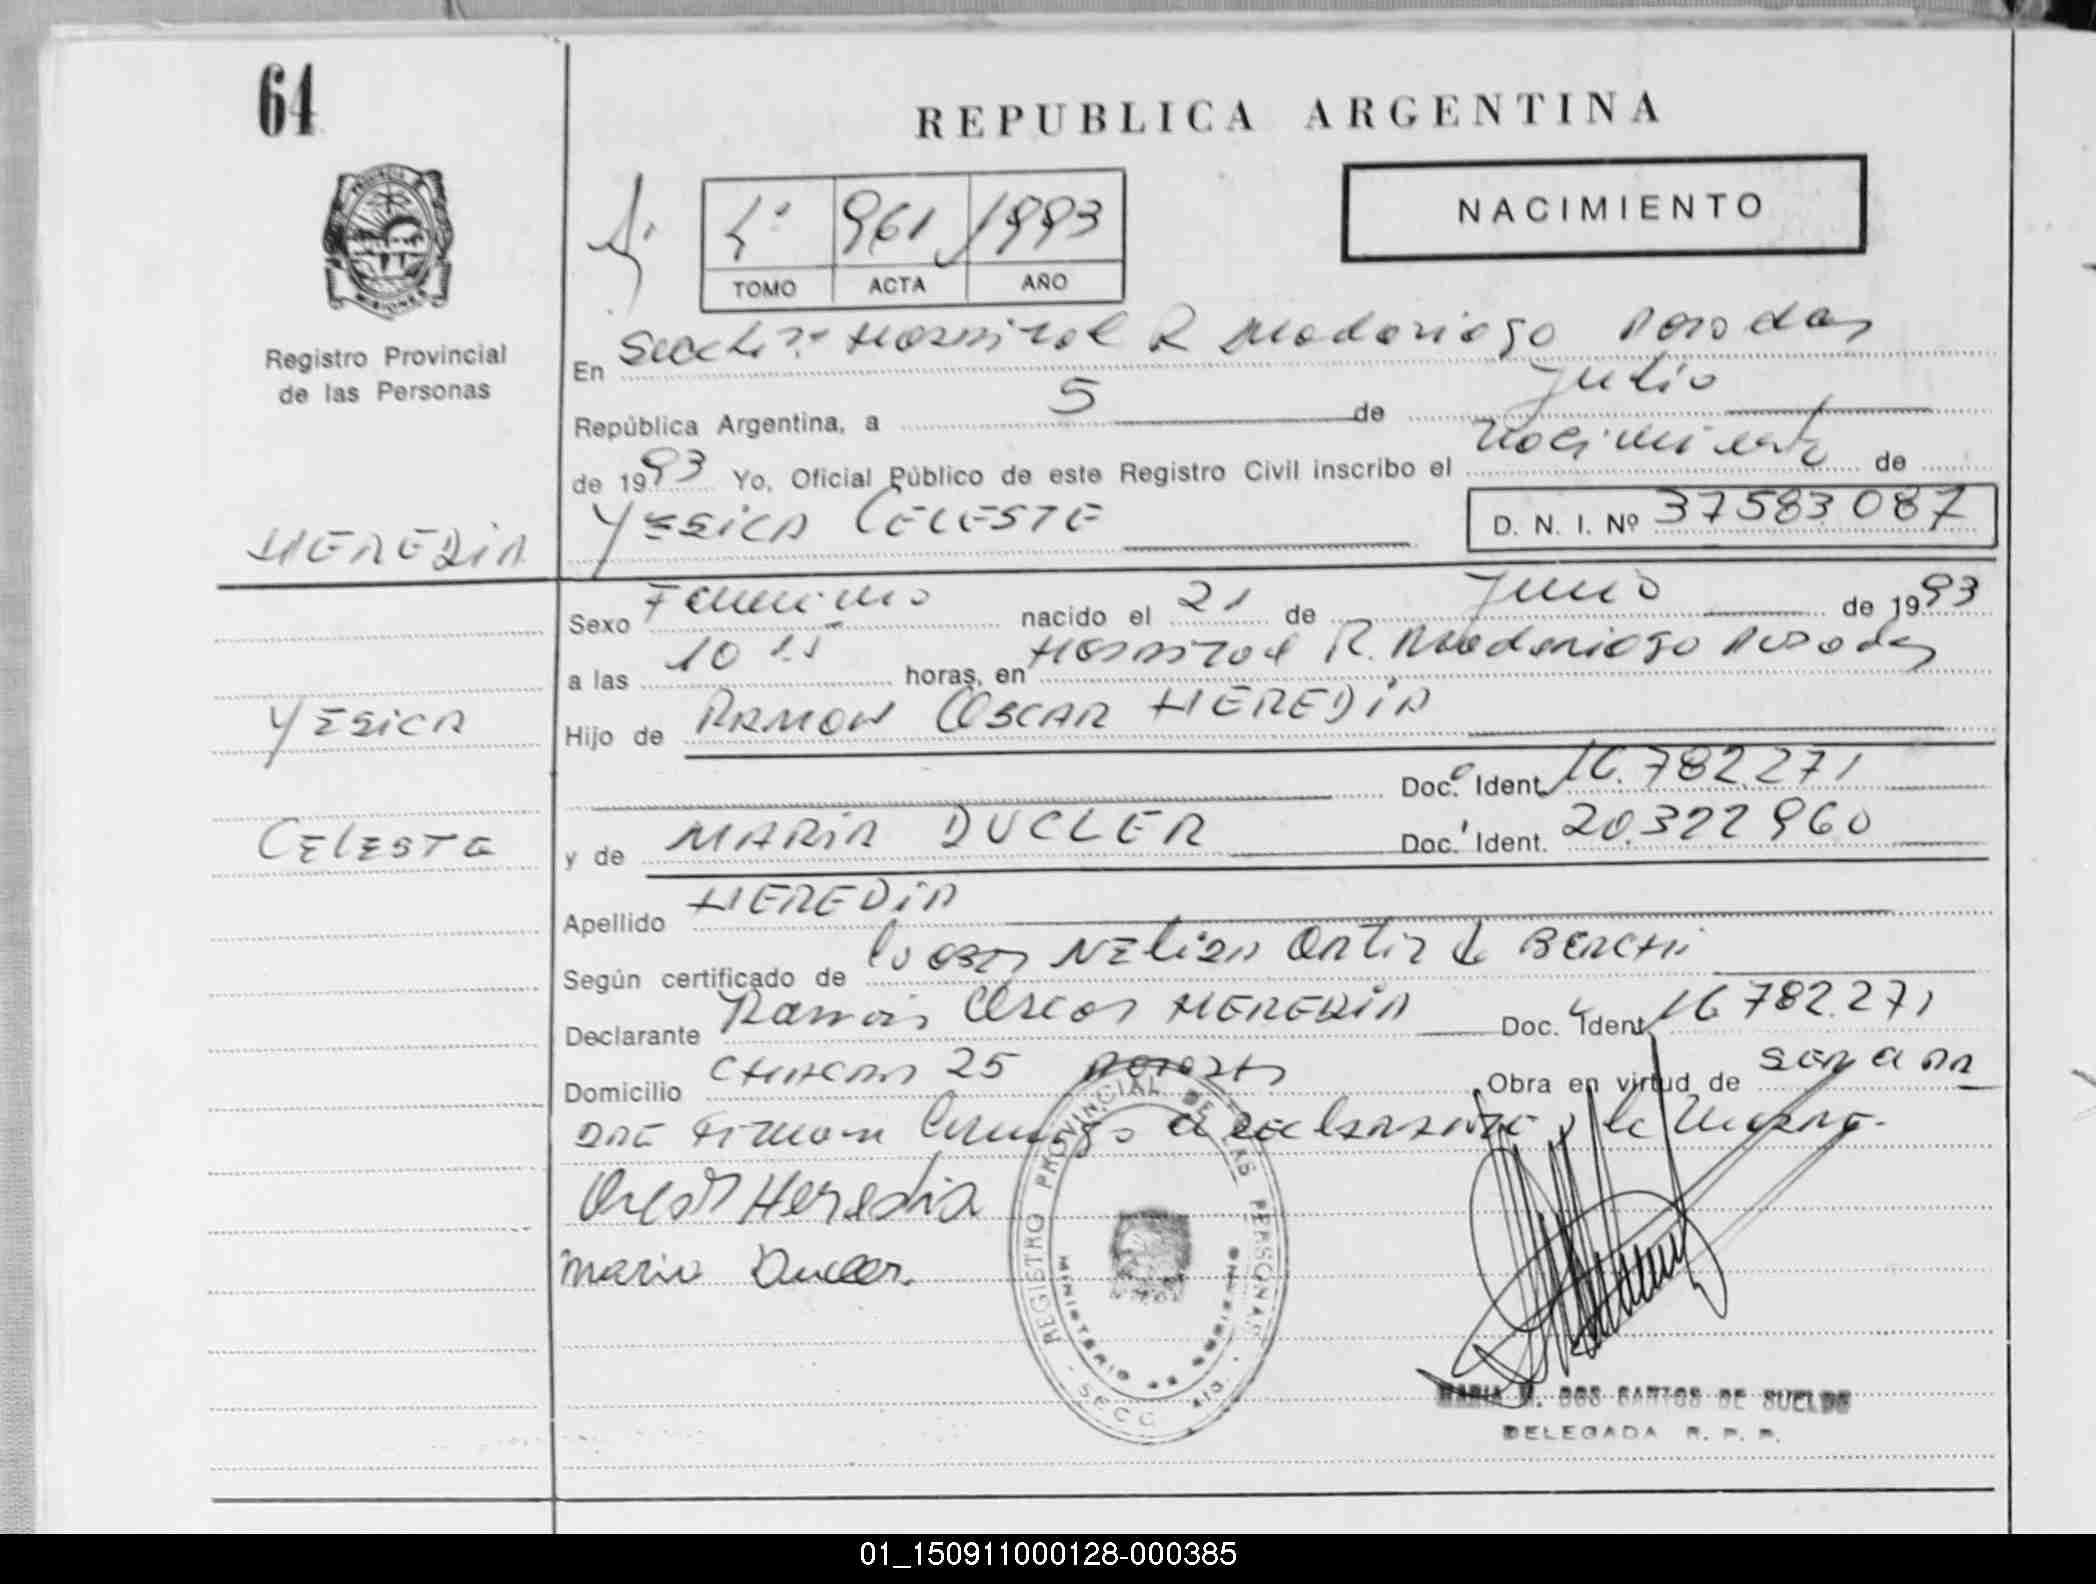 64
REPUBLICA ARGENTINA
NACIMIENTO
961 1993
TOMO ACTA AÑO
PROVINCIA DE MISIONES
Registro Provincial
de las Personas
En Hospital R Madariaga Posadas
República Argentina, a 5 de Julio
de 1993 Yo, Oficial Público de este Registro Civil inscribo el Nacimiento de
HEREDIA
YESICA CELESTE D. N. I. Nº 37583087
Sexo Femenino nacido el 21 de Junio de 1993
a las 10 horas, en Hospital R. Madariaga Posadas
YESICA
Hijo de RAMON OSCAR HEREDIA
Doc. Ident. 16.782.271
CELESTE
y de MARIA DUCLER Doc. Ident. 20.322960
Apellido HEREDIA
Según certificado de NELIDA Ortiz de BERCHI
Declarante Ramón Oscar HEREDIA Doc. Ident. 16 782.271
Domicilio 25 Obra en virtud de ser
firman conmigo el declarante y la madre.
Oscar Heredia
Maria Ducler.
REGISTRO PROVINCIAL DE LAS PERSONAS
MINISTERIO DE GOBIERNO
SECC.
MARIA DOS SANTOS DE SUELDO
DELEGADA R. P. P.
01_150911000128-000385